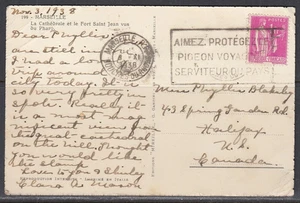 Nov. 3, 1938
190 - MARSEILLE
La Cathédrale et le Fort Saint Jean vus
du Pharo
Dear Phyllis
are still in
I had a lo
trip around
city today. It is
so very pretty in
spots. Really it
is a most mag
nificent view from
the
on the hill. Thought
you would like
the stamp
Love to you & Shirley
Clara A. Mason
MARSEILLE
AIMEZ, PROTÉGEZ
PIGEON VOYA
SERVITEUR DU PAYS
Miss Phyllis Blakeley
43 Spring Garden Rd.
Halifax
N.S.
Canada.